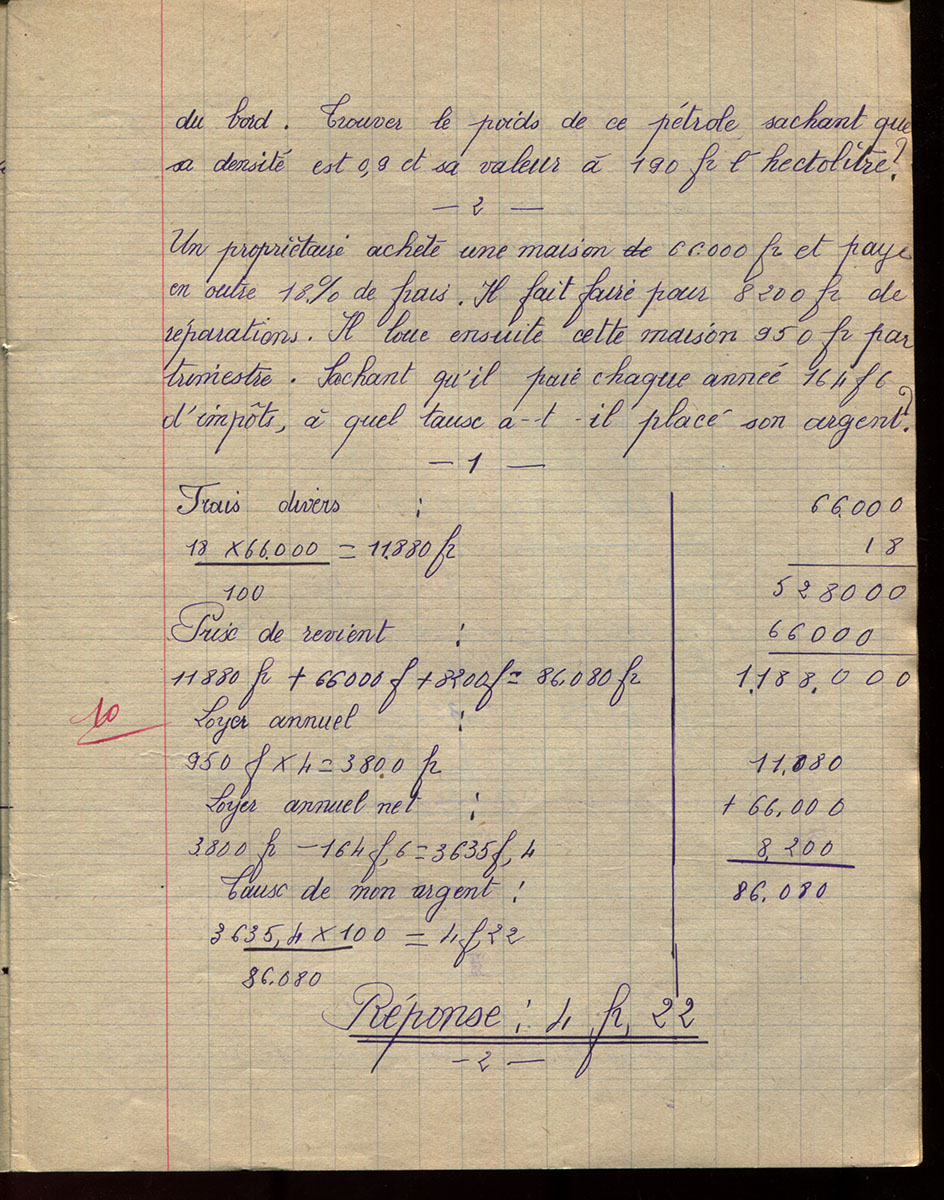 du bord. Trouver le poids de ce pétrole, sachant que
sa densité est 0,9 et sa valeur à 190 fr l'hectolitre?
— 2 —
Un propriétaire achète une maison de 66.000 fr et paye
en outre 18% de frais. Il fait faire pour 8200 fr de
réparations. Il loue ensuite cette maison 950 fr par
trimestre. Sachant qu'il paie chaque année 164 f 6
d'impôts, à quel taux a-t-il placé son argent?
— 1 —
Frais divers : 66.000
18 × 66.000 = 11.880 fr 18
100 528000
Prix de revient : 66000
11880 fr + 66000 f + 8200 f = 86.080 fr 1.188.000
10 Loyer annuel :
950 f × 4 = 3800 fr 11.880
Loyer annuel net : + 66.000
3.800 fr - 164 f,6 = 3635 f,4 8.200
Taux de mon argent : 86.080
3635,4 × 100 = 4 f,22
86.080
Réponse : 4 fr, 22
— 2 —